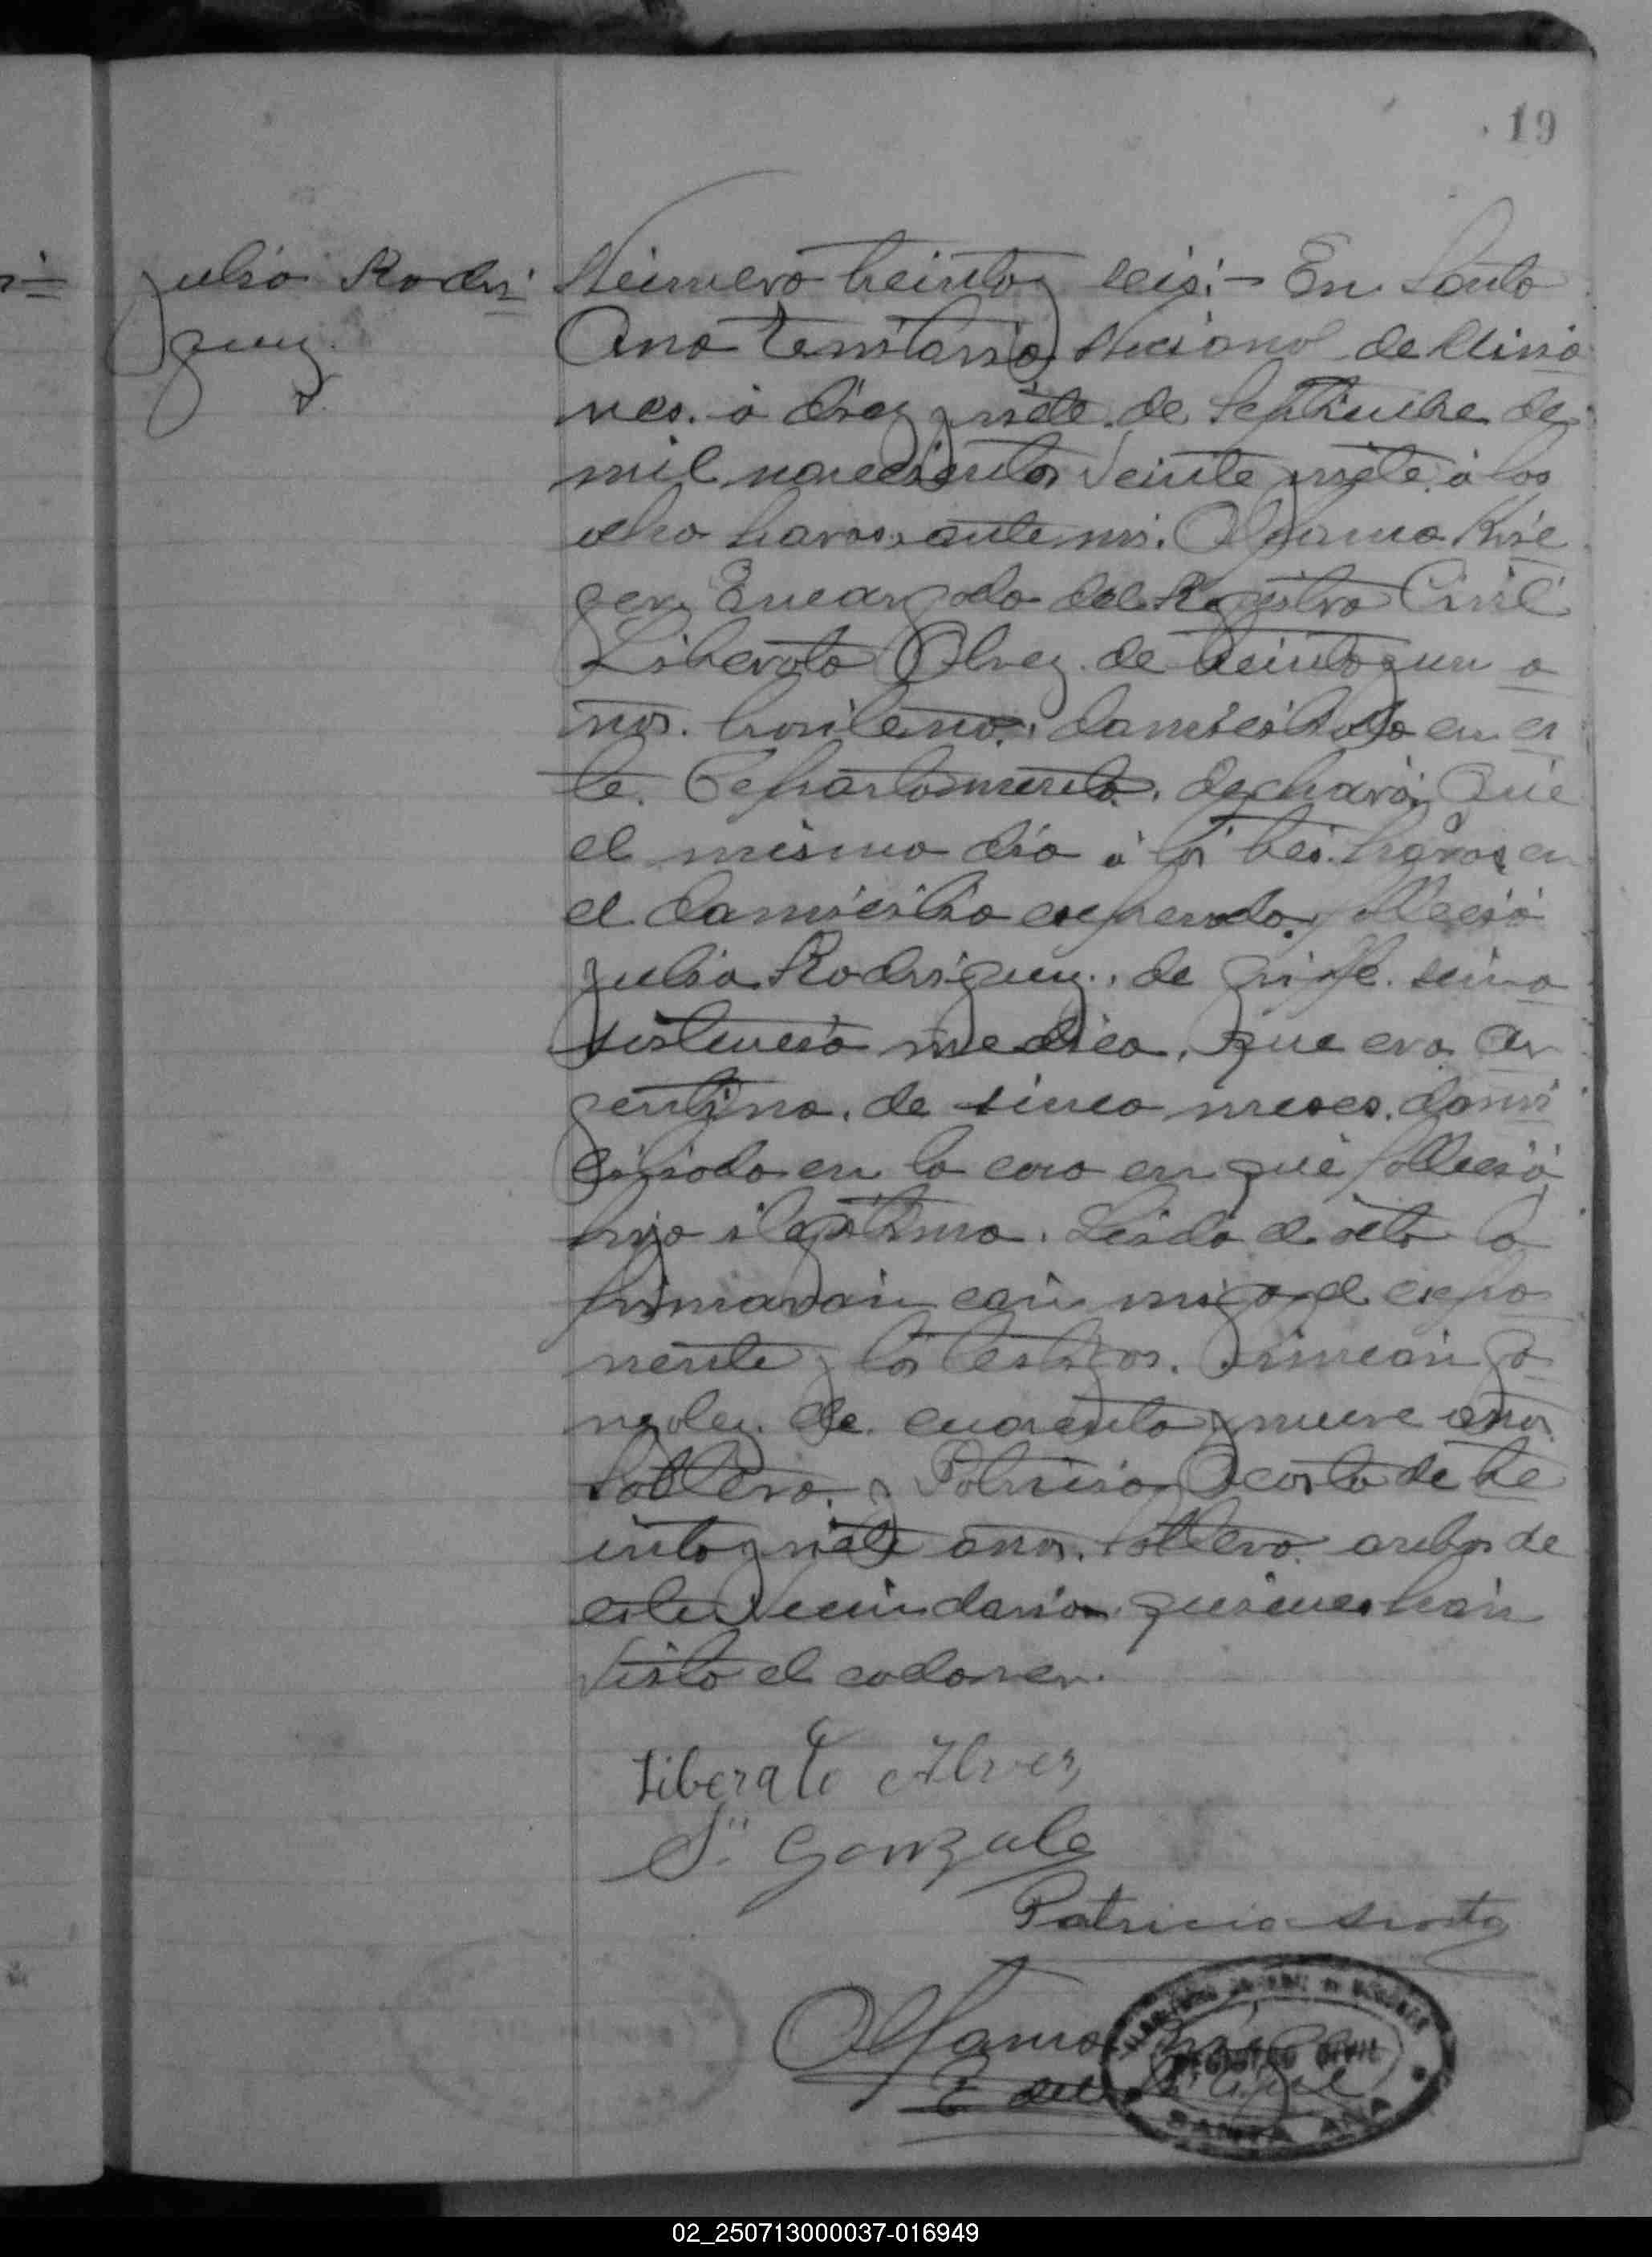 19
Julio Rodri
guez
Número treinta y seis:- En Santa
Ana territorio Nacional de Misio
nes. á diez y siete de Septiembre de
mil novecientos veinte y siete á las
ocho horas, ante mi. Alfama
Encargado del Registro Civil
Liberato Alvez de treinta y un a
ños. brasileño, domiciliado en es
te. Departamento. declaró: Que
el mismo dia á las tres horas, en
el domicilio expresado falleció
Julio Rodriguez, de grippe. sin a
sistencia medica, que era ar
gentino. de sinco meses. domi
ciliado en la casa en que falleció
hijo ilegitimo. Leida el acta la
firmaron con migo el expo
nente y los testigos. Simeon Go
nzalez. de cuarenta y nueve años
soltero. y Patricio Acosta de tre
inta y siete años. soltero ambos de
este Vecindario quienes han
visto el cadaver.
Liberato Alvez
S. Gonzale
Patricio Acosta
Alfama
E del R. Civil
REGISTRO CIVIL
SANTA ANA
02_250713000037-016949